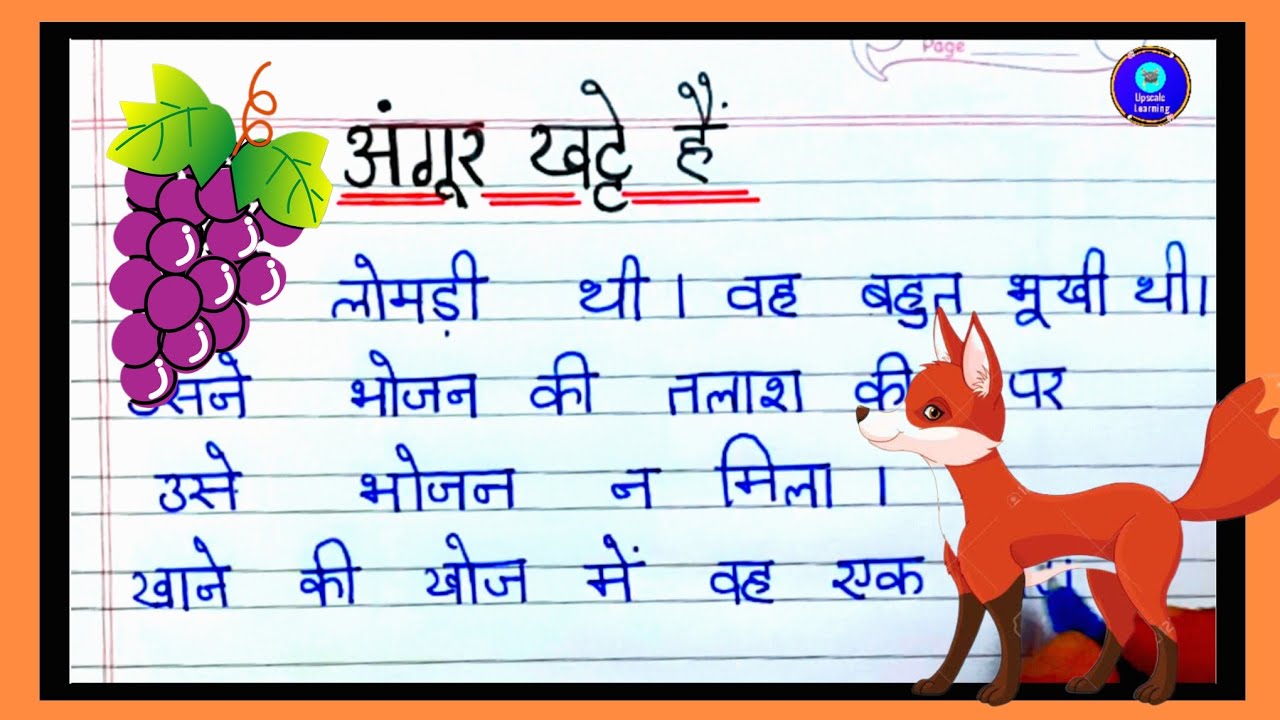 Page
Upscale
Learning
अंगूर खट्टे हैं
लोमड़ी थी। वह बहुत भूखी थी।
भोजन की तलाश की पर
उसे भोजन न मिला।
खाने की खोज में वह एक